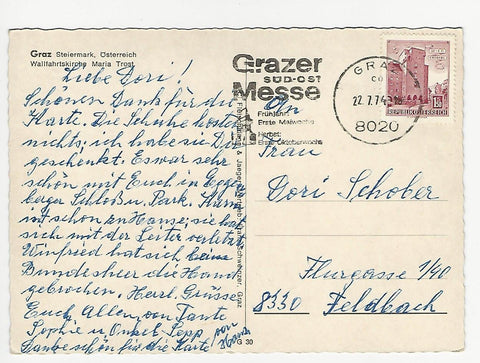 Graz Steiermark, Österreich
Wallfahrtskirche Maria Trost
Liebe Dori!
Schönen Dank für die
Karte. Die Schuhe kosten
nichts, ich habe sie Dir
geschenkt. Es war sehr
schön mit Euch in Eggen-
berger Schloß u. Park.
ist schon zu Hause; sie hat
sich mit der Leiter verletzt.
Winfried hat sich beim
Bundesheer die Hand
gebrochen. Herzl. Grüsse
Euch Allen, von Tante
Sophie u Onkel Sepp
Danke schön für die Karte von
Grazer
SÜD-OST
Messe
Frühjahr:
Erste Maiwoche
Herbst:
Erste Oktoberwoche
GRAZ
22.7.74
8020
REPUBLIK ÖSTERREICH
An
Frau
Dori Schober
Flurgasse 1/90
8330 Feldbach
G 30